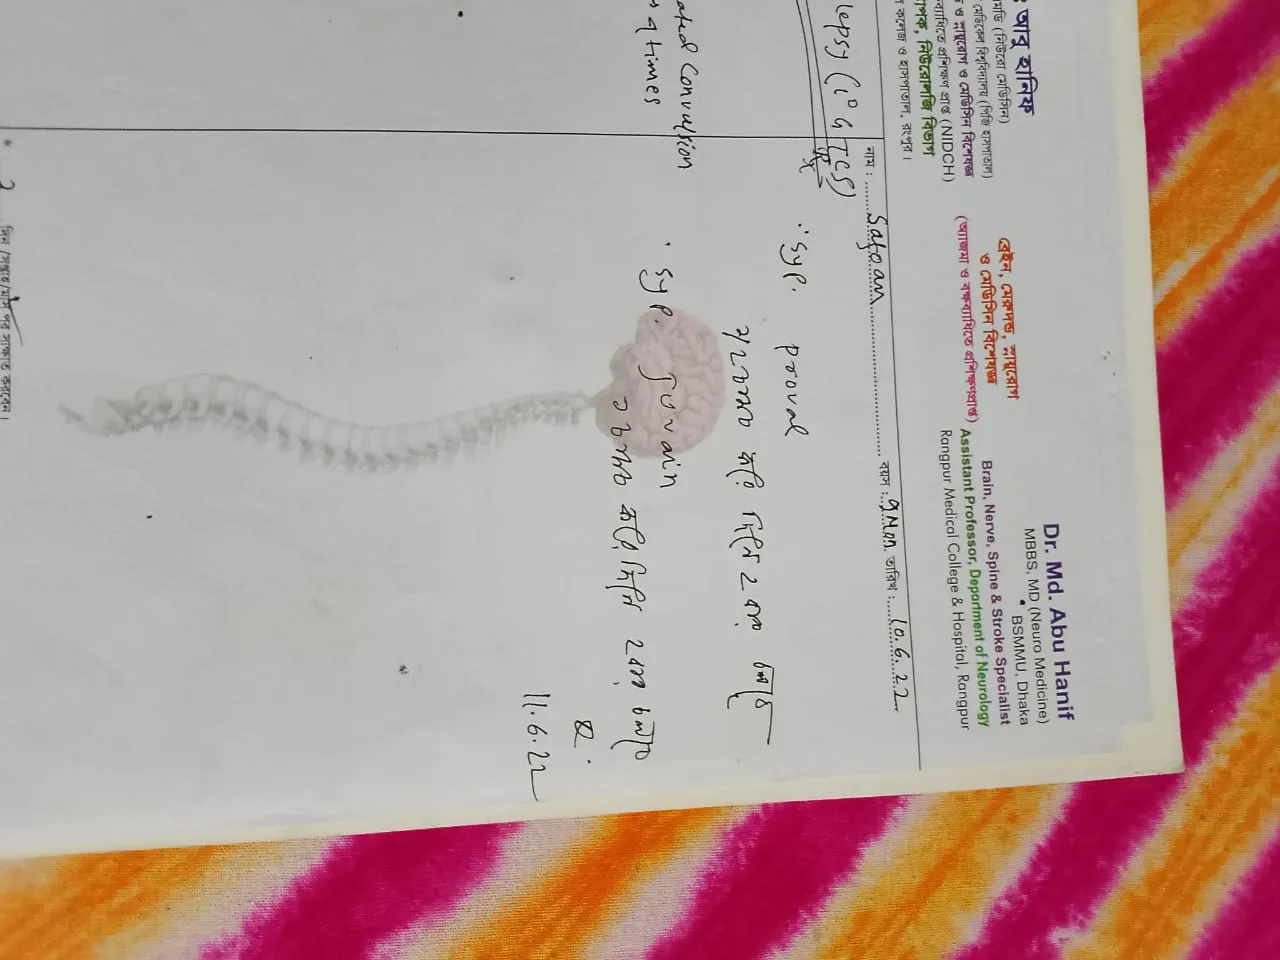 ঃ আবু হানিফ
মডি (নিউরো মেডিসিন)
মেডিকেল বিশ্ববিদ্যালয় (পিজি হাসপাতাল)
ও স্নায়ুরোগ ও মেডিসিন বিশেষজ্ঞ
ব্যাধিতে প্রশিক্ষণ প্রাপ্ত (NIDCH)
পক, নিউরোলজি বিভাগ
কলেজ ও হাসপাতাল, রংপুর।
ব্রেইন, মেরুদন্ড, স্নায়ুরোগ
ও মেডিসিন বিশেষজ্ঞ
(অ্যাজমা ও বক্ষব্যাধিতে প্রশিক্ষণপ্রাপ্ত)
Dr. Md. Abu Hanif
MBBS, MD (Neuro Medicine)
BSMMU, Dhaka
Brain, Nerve, Spine & Stroke Specialist
Assistant Professor, Department of Neurology
Rangpur Medical College & Hospital, Rangpur
নাম : Safoan বয়স : 9M তারিখ : 10.6.22
lepsy (1° GTCS)
Rx
Syp. proval
ated Convulsion
9 times
Syp.
11.6.22
দিন /সপ্তাহ/মাস পর সাক্ষাত করবেন।